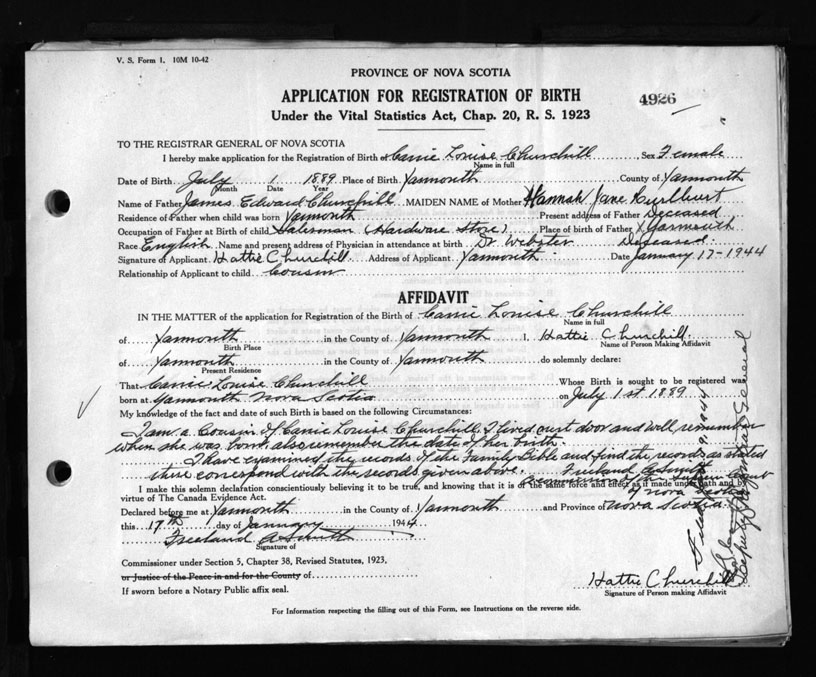 V. S. Form 1. 10M 10-42
PROVINCE OF NOVA SCOTIA
APPLICATION FOR REGISTRATION OF BIRTH
4926
Under the Vital Statistics Act, Chap. 20, R. S. 1923
TO THE REGISTRAR GENERAL OF NOVA SCOTIA
I hereby make application for the Registration of Birth of Carrie Louise Churchill Sex Female
Name in full
Date of Birth July 1 1889 Place of Birth Yarmouth County of Yarmouth
Month Date Year
Name of Father James Edward Churchill MAIDEN NAME of Mother Hannah Jane Hurlburt
Residence of Father when child was born Yarmouth Present address of Father Deceased
Occupation of Father at Birth of child Salesman (Hardware Store) Place of birth of Father Yarmouth
Race English Name and present address of Physician in attendance at birth Dr. Webster Deceased.
Signature of Applicant Hattie Churchill Address of Applicant Yarmouth Date January 17-1944
Relationship of Applicant to child Cousin
AFFIDAVIT
IN THE MATTER of the application for Registration of the Birth of Carrie Louise Churchill
Name in full
of Yarmouth in the County of Yarmouth I, Hattie Churchill
Birth Place Name of Person Making Affidavit
of Yarmouth in the County of Yarmouth do solemnly declare:
Present Residence
That Carrie Louise Churchill Whose Birth is sought to be registered was
born at Yarmouth Nova Scotia on July 1st 1889
My knowledge of the fact and date of such Birth is based on the following Circumstances:
I am a Cousin of Carrie Louise Churchill. I lived next door and well remember
when she was born, also remember the date of her birth.
I have examined the records of the Family Bible and find the records as stated
there correspond with the records given above. Freeland A Smith
a commissioner Supreme Court
I make this solemn declaration conscientiously believing it to be true, and knowing that it is of the same force and effect as if made under oath and by
of Nova Scotia
virtue of the Canada Evidence Act.
Declared before me at Yarmouth in the County of Yarmouth and Province of Nova Scotia
this 17th day of January 1944
Freeland A Smith
Signature of
Commissioner under Section 5, Chapter 38, Revised Statutes, 1923,
or Justice of the Peace in and for the County of
If sworn before a Notary Public affix seal.
Hattie Churchill
Signature of Person making Affidavit
For Information respecting the filling out of this Form, see Instructions on the reverse side.
Deputy Registrar General